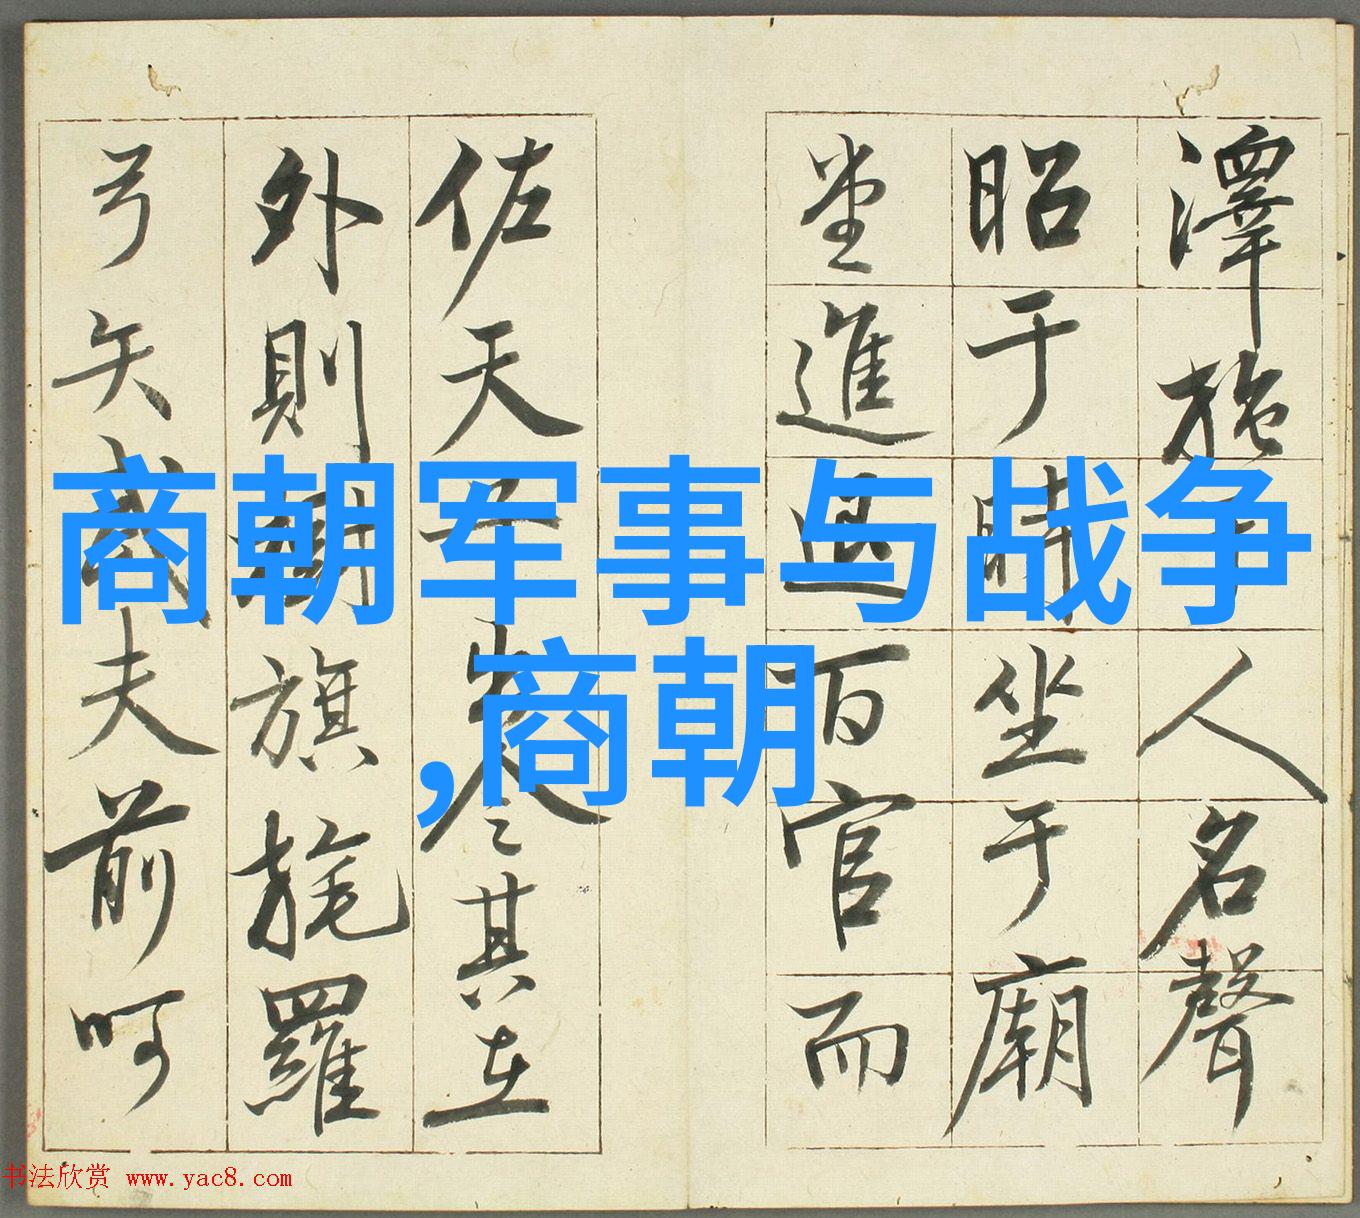 澤施于人名聲
昭于時坐于廟
堂進退百官而
佐天子出令其在
外則樹旗旄羅
弓矢武夫前呵
商朝军事与战争
,商朝
书法欣赏 www.yac8.com